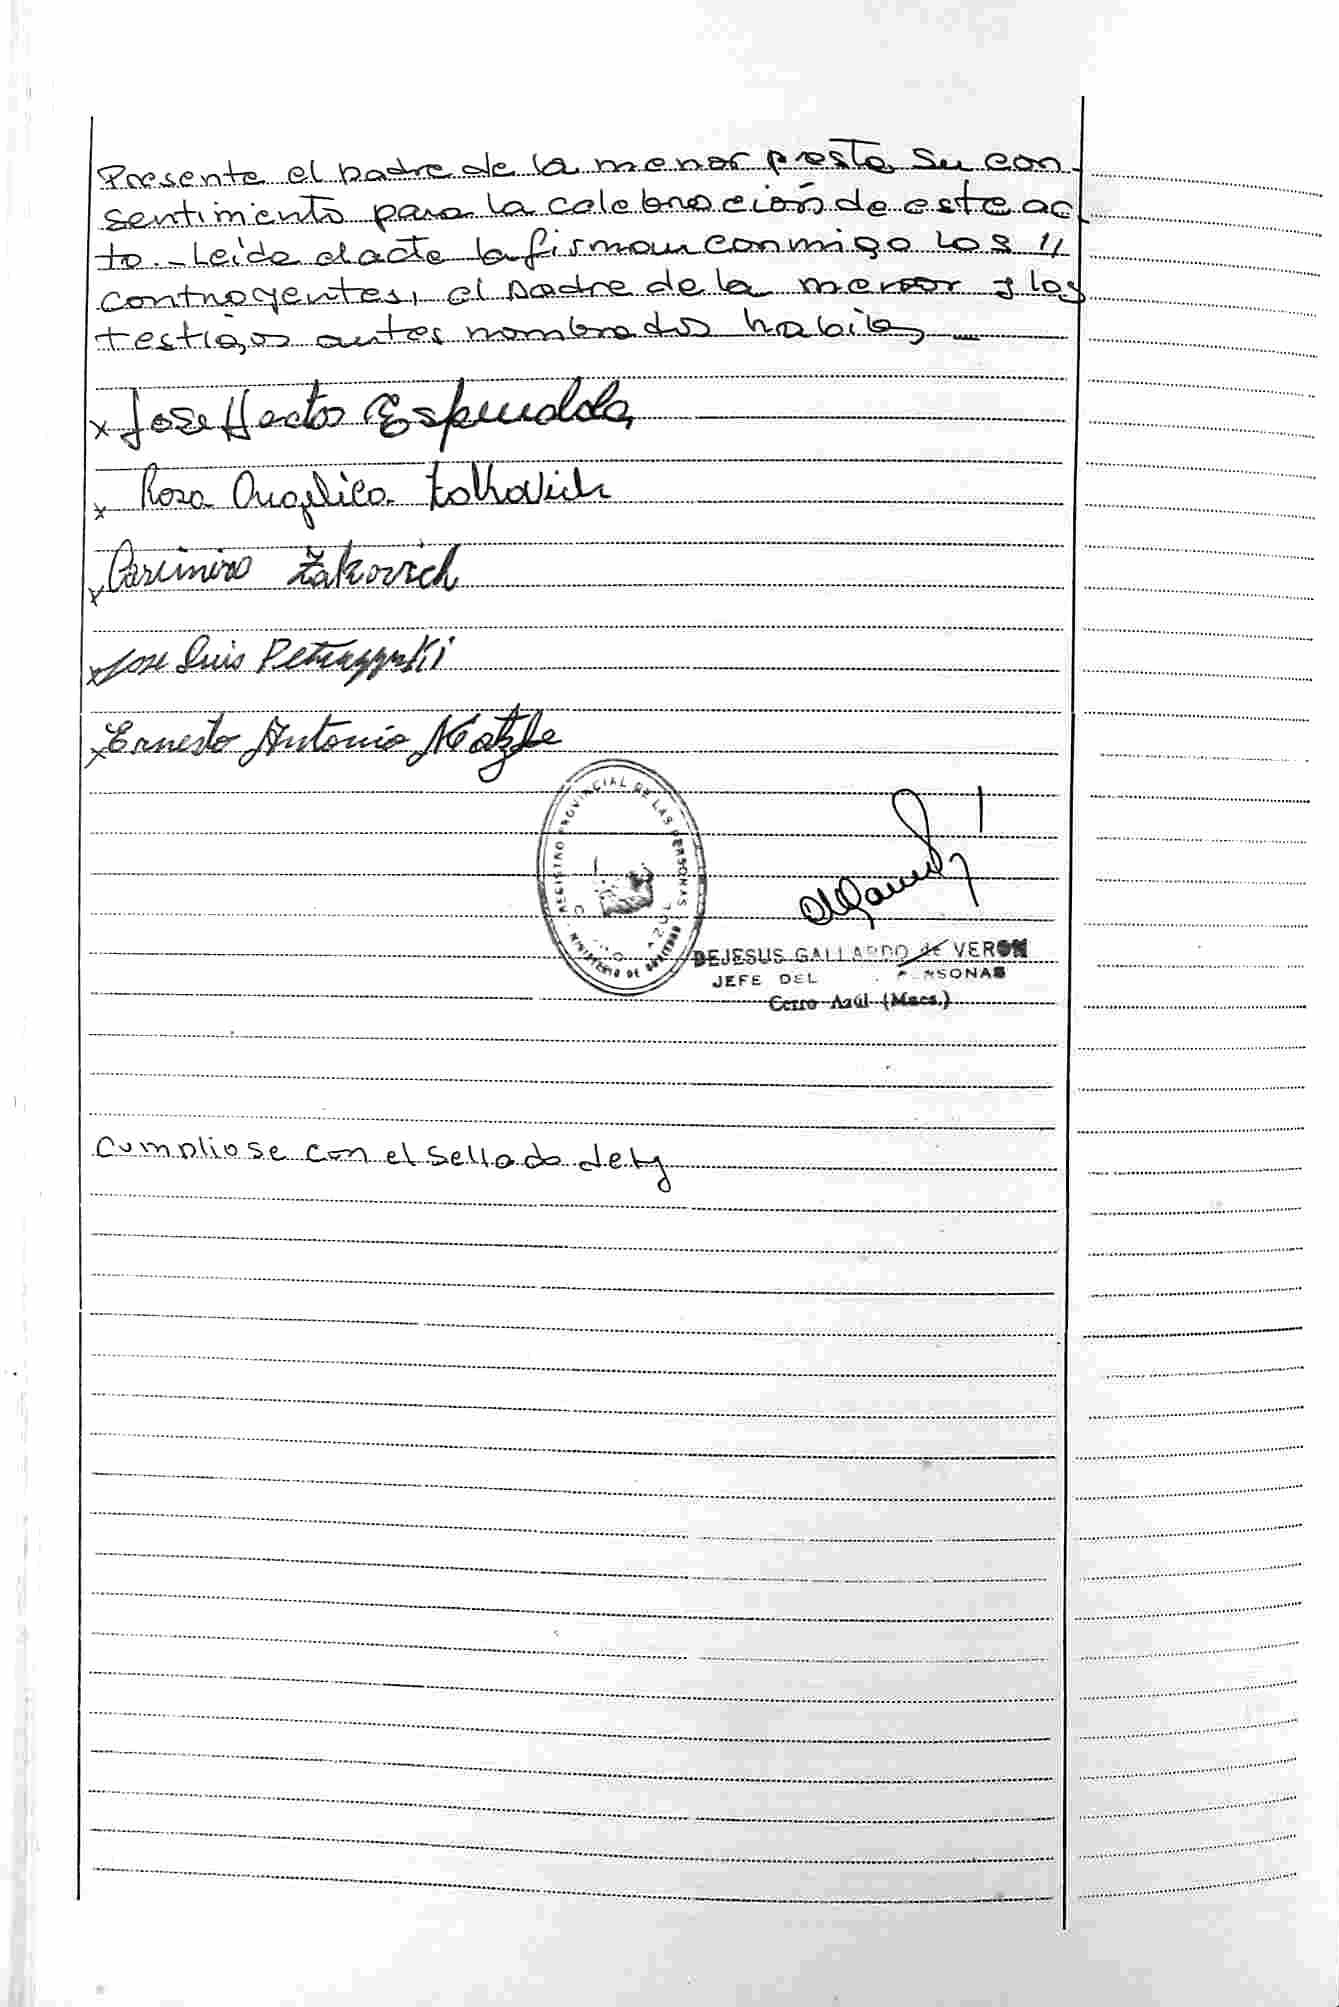 Presente el padre de la menor presta su con-
sentimiento para la celebración de este ac-
to.- Leída el acta la firman conmigo los //
contrayentes, el padre de la menor y los
testigos antes nombrados habiles
x Jose Hector Espindola
x Rosa Angelica Zakovich
x Casimiro Zakovich
x Jose Luis
x Ernesto Antonio
REGISTRO PROVINCIAL DE LAS PERSONAS
MINISTERIO DE GOBIERNO
DEJESUS GALLARDO de VERON
JEFE DEL PERSONAS
Cerro Azúl (Mnes.)
Cumpliose con el sellado de ley